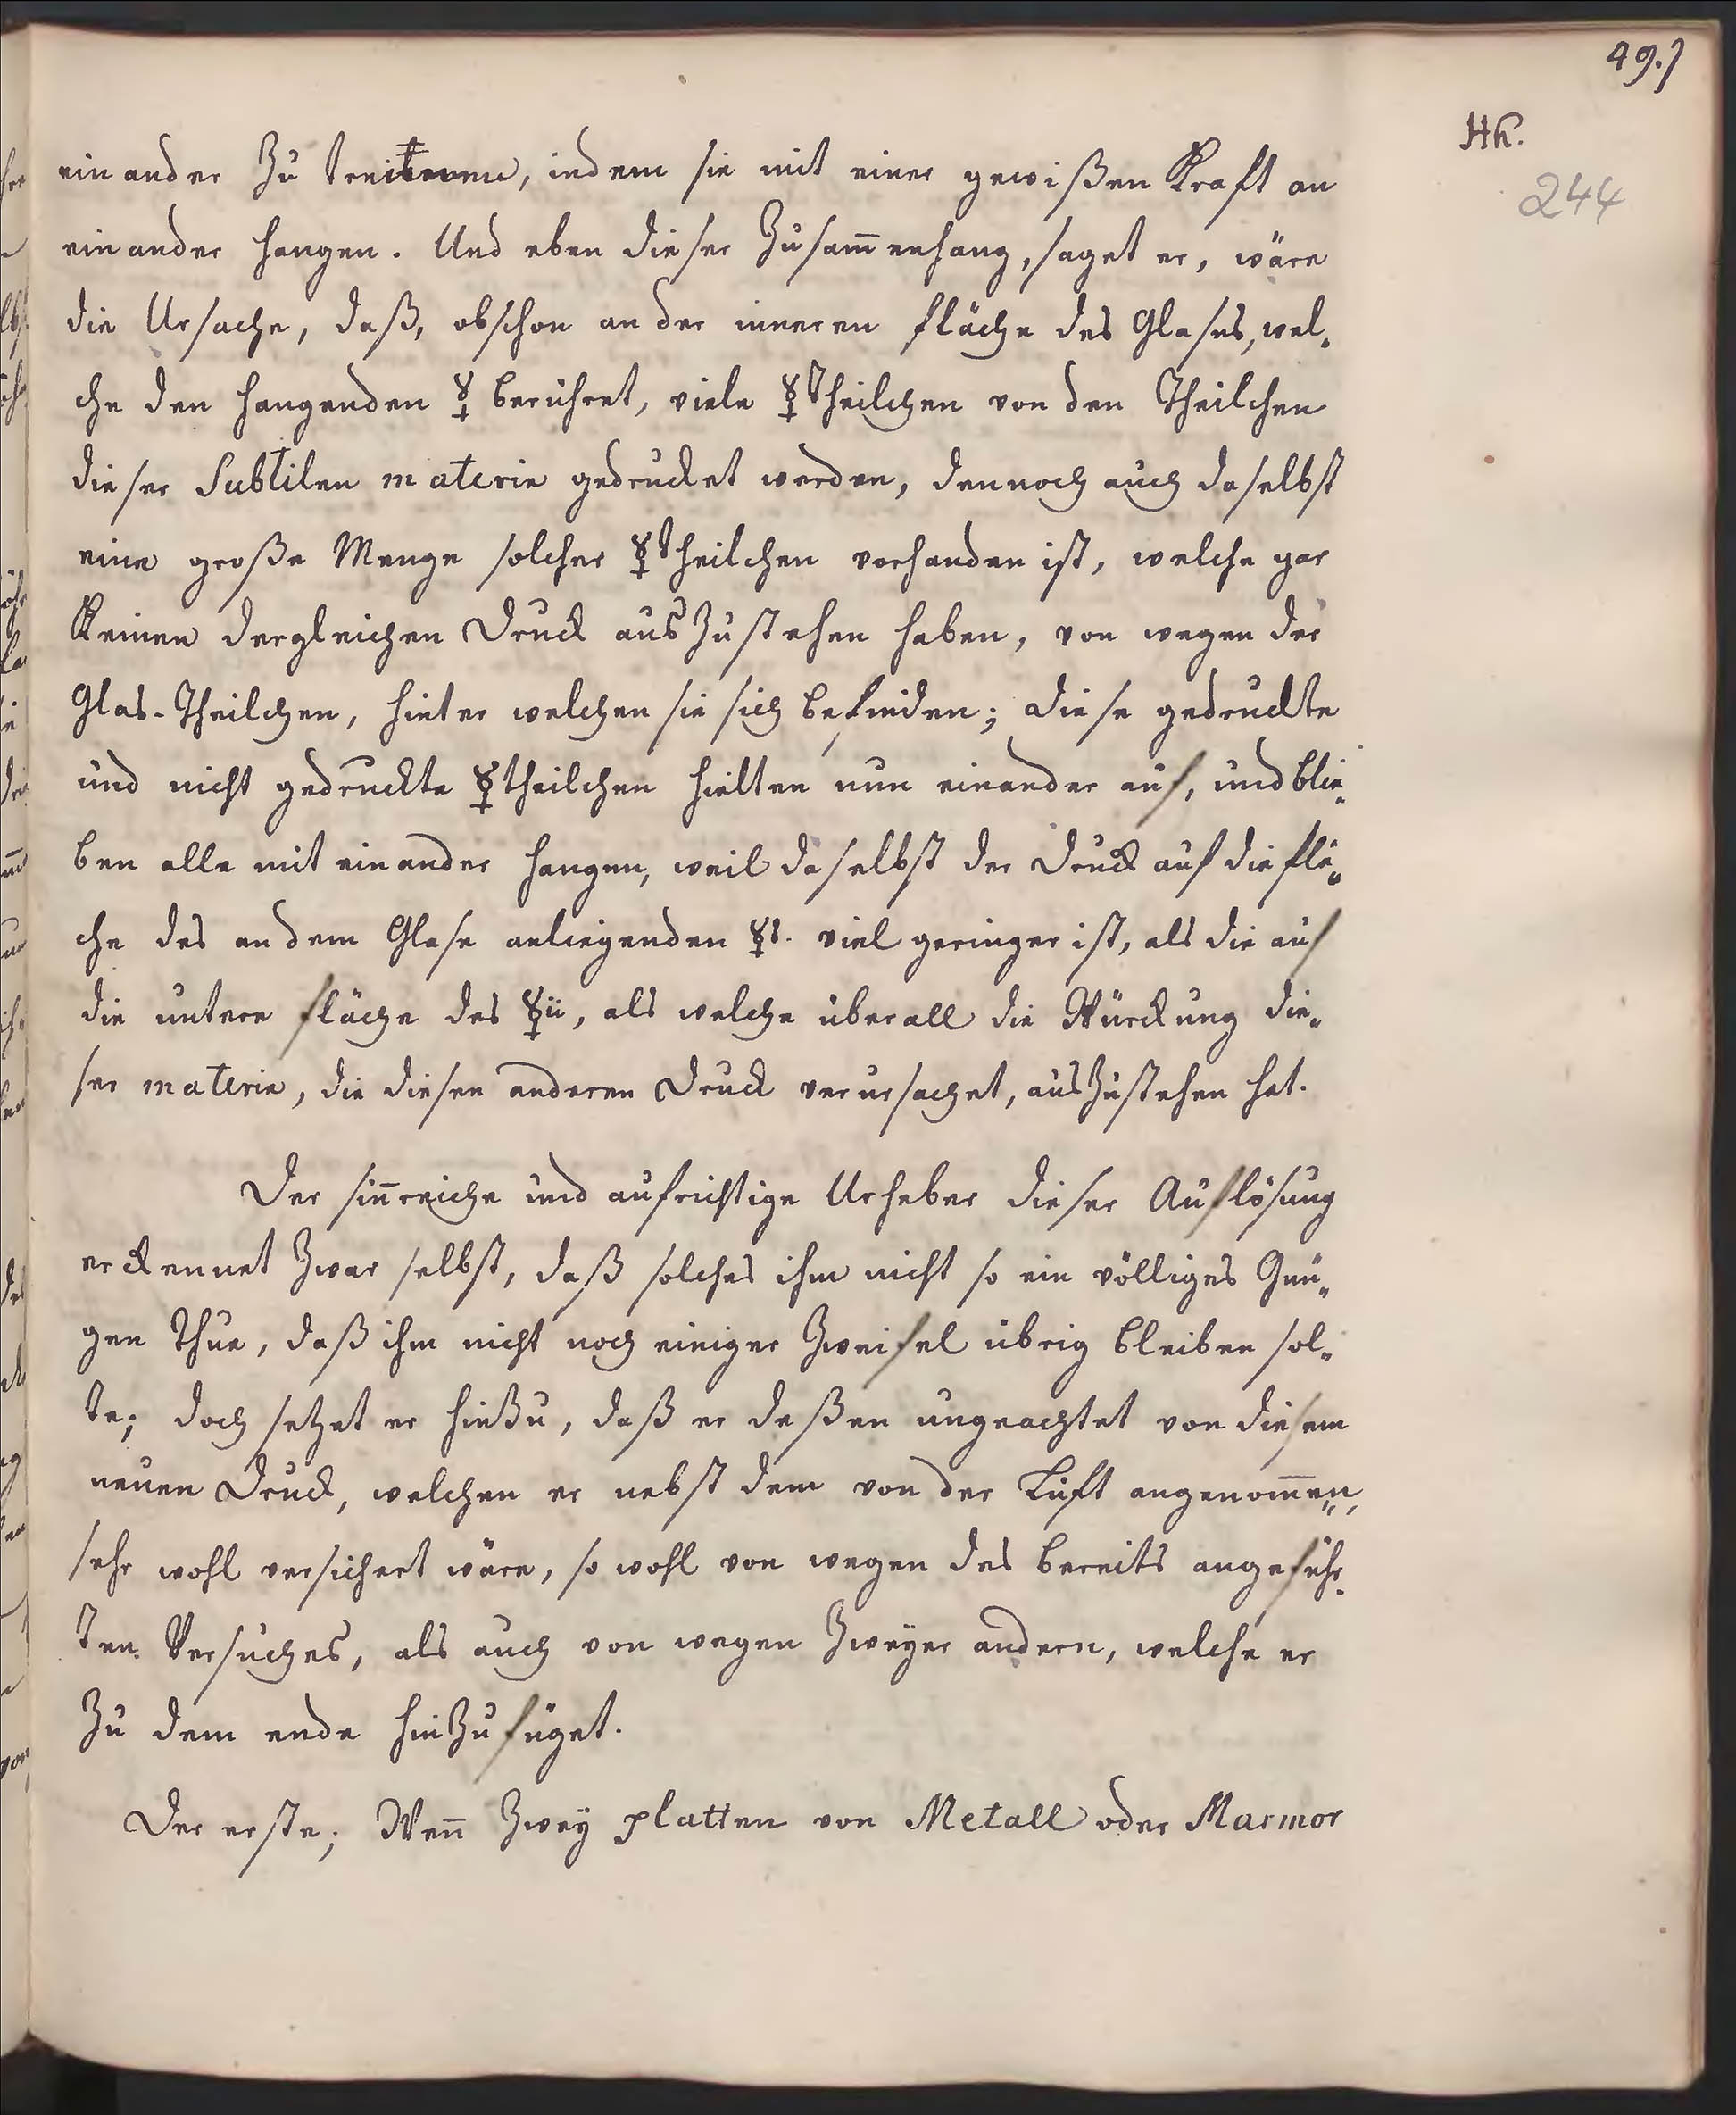 49.)
Hh.
244
einander Zu, indem sie mit einer gewißen Krafft an
einander hangen. Und eben dieser Zusam̄enhang, saget er, wäre
die Ursache, daß, obschon an der inneren fläche des Glases, wel„
che den hangenden ☿ berühret, viele ☿Theilchen von den Theilchen
dieser Subtilen materie gedrucket werden, dennoch auch daselbst
eine große Menge solcher ☿theilchen vorhanden ist, welche gar
Keinen dergleichen Druck ausZustehen haben, von wegen der
Glas-Theilchen, hinter welchen sie sich befinden; diese gedruckte
und nicht gedruckte ☿theilchen hielten nun einander auf, und blie„
ben alle mit einander hangen, weil daselbst der Druck auf die flä„
che des an dem Glase anliegenden ☿s. viel geringer ist, als die auf
die untere fläche des ☿ii, als welche überall die Würckung die„
ser materie, die diesen anderen Druck verursachet, ausZustehen hat.
Der sin̄reiche und aufrichtige Urheber dieser Auflösung
erckennet Zwar selbst, daß solches ihm nicht so ein völliges Gnü„
gen Thue, daß ihm nicht noch einiger Zweifel übrig bleiben sol„
te; doch setzet er hinZu, daß er deßen ungeachtet von diesem
neuen Druck, welchen er nebst dem von der Luft angenom̄en,
sehr wohl versichert wäre, so wohl von wegen des bereits angeführ„
ten Versuches, als auch von wegen Zweyer andern, welche er
Zu dem ende hinZufüget.
Der erste; Wen̄ Zwey platten von Metall oder Marmor